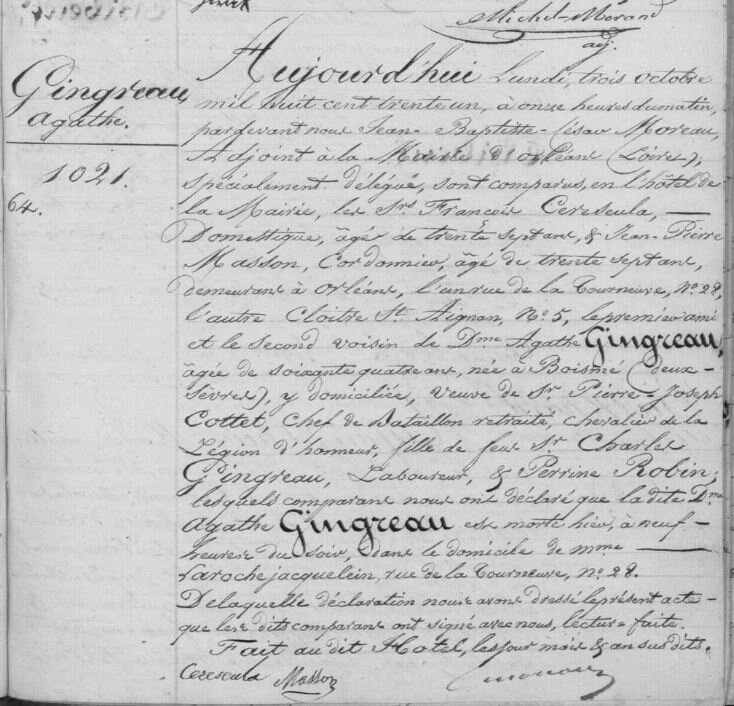 Michel-Morand
adj.
Gingreau
Agathe.
1021.
64.
Aujourd'hui Lundi, trois octobre
mil huit cent trente un, à onze heures du matin,
pardevant nous Jean-Baptiste-César Moreau,
Adjoint à la Mairie d'Orléans (Loiret),
spécialement délégué, sont comparus, en l'hôtel de
la Mairie, les Srs François Cereseula,
Domestique, âgé de trente sept ans, & Jean-Pierre
Masson, Cordonnier, âgé de trente sept ans,
demeurans à Orléans, l'un rue de la Tourneuve, No 28,
l'autre Cloitre St Aignan, No 5, le premier ami
et le second voisin de Dme Agathe Gingreau,
âgée de soixante quatre ans, née à Boismé (deux-
sèvres), y domiciliée, veuve de Sr Pierre-Joseph
Cottet, chef de Bataillon retraité, chevalier de la
Légion d'honneur, fille de feus Sr Charles
Gingreau, Laboureur, & Perrine Robin;
lesquels comparans nous ont déclaré que la dite Dme
Agathe Gingreau est morte hier, à neuf-
heures du soir, dans le domicile de mme
Larochejacquelein, rue de la Tourneuve, no 28.
De laquelle déclaration nous avons dressé le présent acte
que les dits comparans ont signé avec nous, lecture faite.
Fait au dit Hôtel, les jour mois & an sus dits.
Cereseula Masson